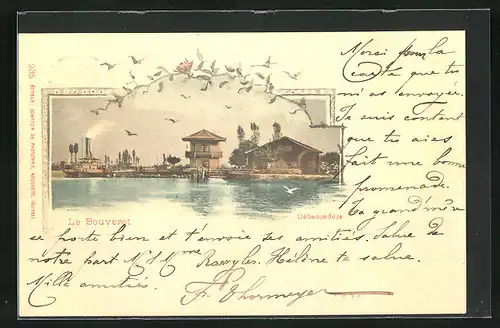 Merci pour la
carte que tu
m'as envoyée.
Je suis content
que tu aies
fait une bonne
promenade.
Ta grand'mère
Le Bouveret
Débarcadère
se porte bien et t'envoie ses amitiés. Salue de
notre part Mr & Mme Hélène te salue.
Mille amitiés.
235